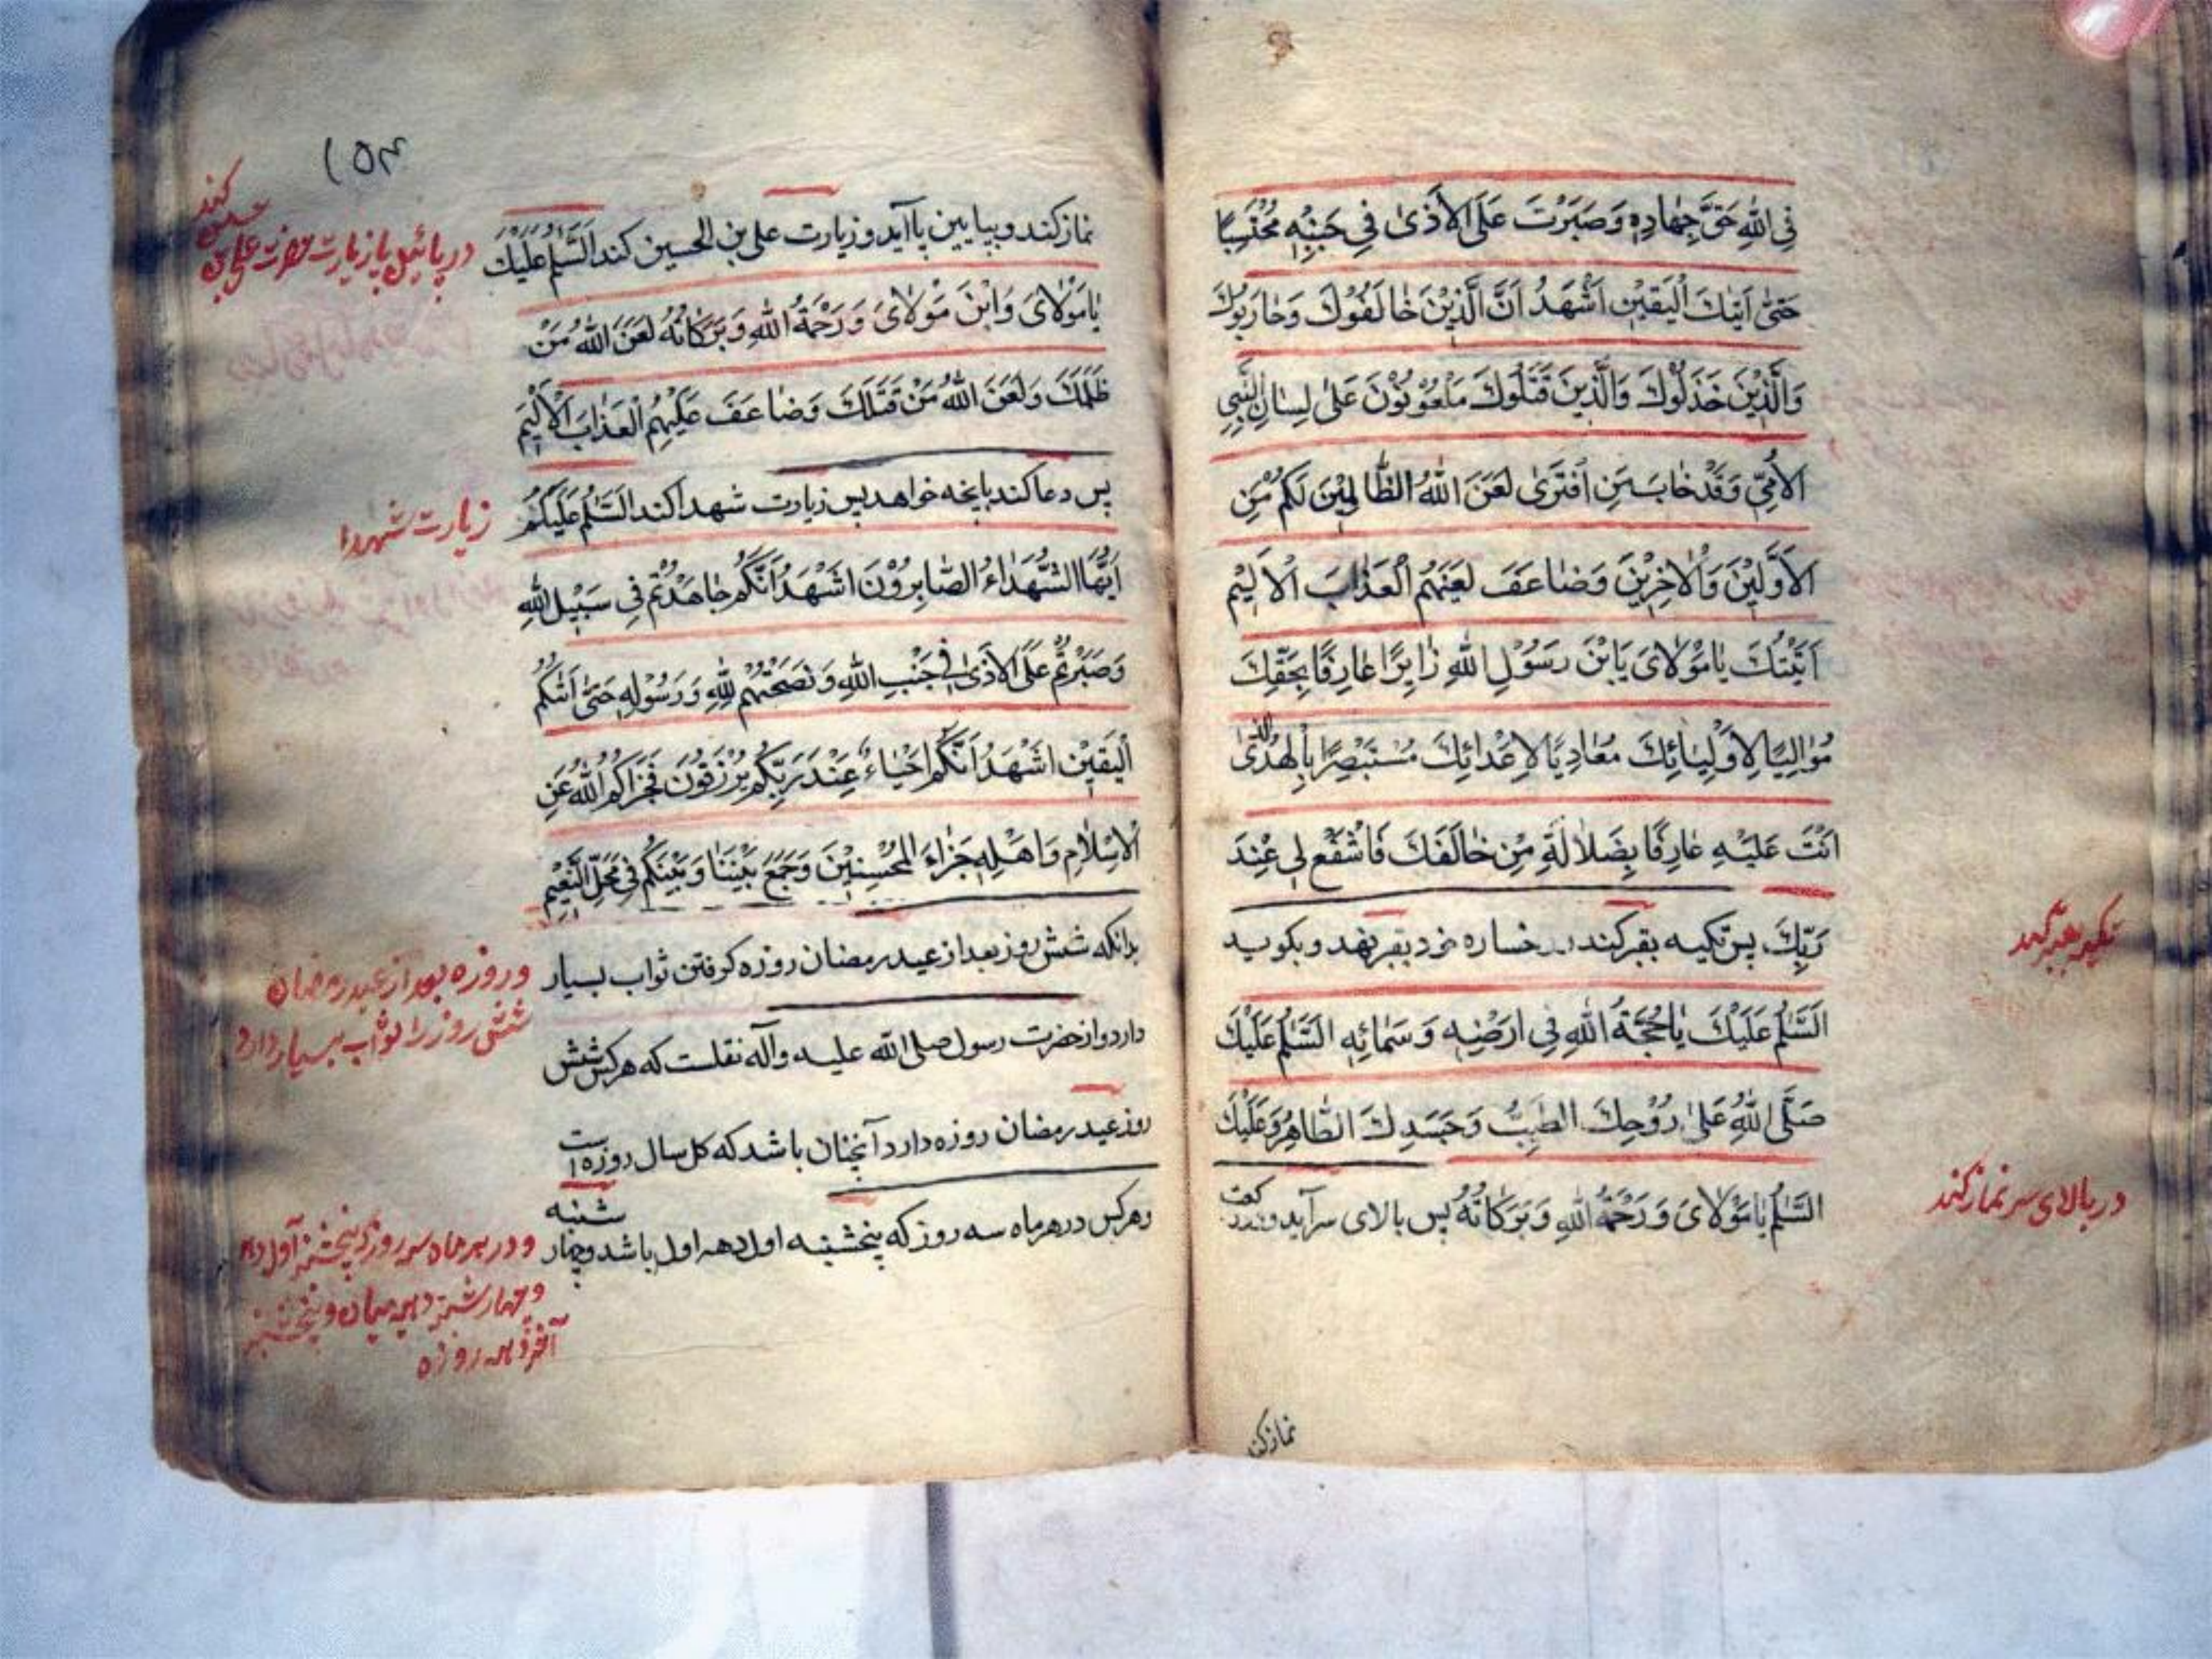 فِی اللّٰهِ حَقَّ جِهَادِهِ وَصَبَرْتَ عَلَی الْاَذٰی فِی جَنْبِهِ مُحْتَسِبًا
حَتّٰی اَتٰیكَ الْیَقِیْنِ اَشْهَدُ اَنَّ الَّذِیْنَ خَالَفُوْكَ وَحَارَبُوْكَ
وَالَّذِیْنَ خَذَلُوْكَ وَالَّذِینَ قَتَلُوكَ مَلْعُوْنُوْنَ عَلٰی لِسَانِ النَّبِیِ
الْاُمِّیِّ وَقَدْ خَابَ مَنِ افْتَرٰی لَعَنَ اللّٰهُ الظَّالِمِیْنَ لَكُمْ مِّنَ
الْاَوَّلِیْنَ وَالْاٰخِرِیْنَ وَضَاعَفَ لَعْنَهُمُ الْعَذَابَ الْاَلِیْم
اَتَیْتُكَ یَا مَوْلَایَ یَابْنَ رَسُوْلِ اللّٰهِ زَایِرًا عَارِفًا بِحَقِّكَ
مُوَالِیًا لِاَوْلِیَائِكَ مُعَادِیًا لِاَعْدَائِكَ مُسْتَبْصِرًا بِالْهُدَی الَّذِی
اَنْتَ عَلَیْهِ عَارِفًا بِضَلَالَةِ مَنْ خَالَفَكَ فَاشْفَعْ لِی عِنْدَ
رَبِّكَ پس تکیه بقبر کند و رخساره خود بقبر نهد و بکوید
تکیه بقبر کند
اَلسَّلَمُ عَلَیْكَ یَا حُجَّةَ اللّٰهِ فِی اَرْضِهِ وَسَمَائِهِ اَلسَّلَمُ عَلَیْكَ
صَلَّی اللّٰهُ عَلٰی رُوْحِكَ الطَیِّبُ وَجَسَدِكَ الطَّاهِرُ وَعَلَیْكَ
السَّلَمُ یَا مَوْلَایَ وَرَحْمَةُ اللّٰهِ وَبَرَكَاتُهُ پس بالای سر آید و
در بالای سر نماز کند
نماز کن
۱۵۴
نماز کند و بپایین پا آید و زیارت علی بن الحسین کند اَلسَّلَمُ عَلَیْكَ
در پائین پا زیارت حضرت علی بن
کند
یَا مَوْلَایَ وَابْنَ مَوْلَایَ وَرَحْمَةُ اللّٰهِ وَبَرَكَاتُهُ لَعَنَ اللّٰهُ مَنْ
ظَلَمَكَ وَلَعَنَ اللّٰهُ مَنْ قَتَلَكَ وَضَاعَفَ عَلَیْهِمُ الْعَذَابَ الْاَلِیْمَ
پس دعا کند بانچه خواهد پس زیارت شهدا کند اَلسَّلَمُ عَلَیْكُمْ
زیارت شهدا
اَیُّهَا الشُّهَدَاءُ الصَّابِرُوْنَ اَشْهَدُ اَنَّكُمْ جَاهَدْتُمْ فِی سَبِیْلِ اللّٰهِ
وَصَبَرْتُمْ عَلَی الْاَذٰی فِی جَنْبِ اللّٰهِ وَنَصَحْتُمْ لِلّٰهِ وَرَسُوْلِهِ حَتّٰی اَتٰكُمُ
الْیَقِیْنُ اَشْهَدُ اَنَّكُمْ اَحْیَاءٌ عِنْدَ رَبِّكُمْ یُرْزَقُوْنَ فَجَزَاكُمُ اللّٰهُ عَنِ
الْاِسْلَامِ وَاَهْلِهِ جَزَاءَ الْمُحْسِنِیْنَ وَجَمَعَ بَیْنَنَا وَبَیْنَكُمْ فِی مَحَلِّ النَّعِیْمِ
بدانکه شش روز بعد از عید رمضان روزه کرفتن ثواب بسیار
و روزه بعد از عید رمضان
شش روز را ثواب بسیار دارد
دارد و از حضرت رسول صلی الله علیه وآله نقلست که هر کس شش
روز عید رمضان روزه دارد آنچنان باشد که کل سال روزه است
و هر کس در هر ماه سه روز که پنخشنبه اول دهه اول باشد و چهار شنبه
و در هر ماه سه روز که پنجشنبه اول دهه
و چهار شنبه دهه میانه و پنجشنبه
آخر دهه روزه